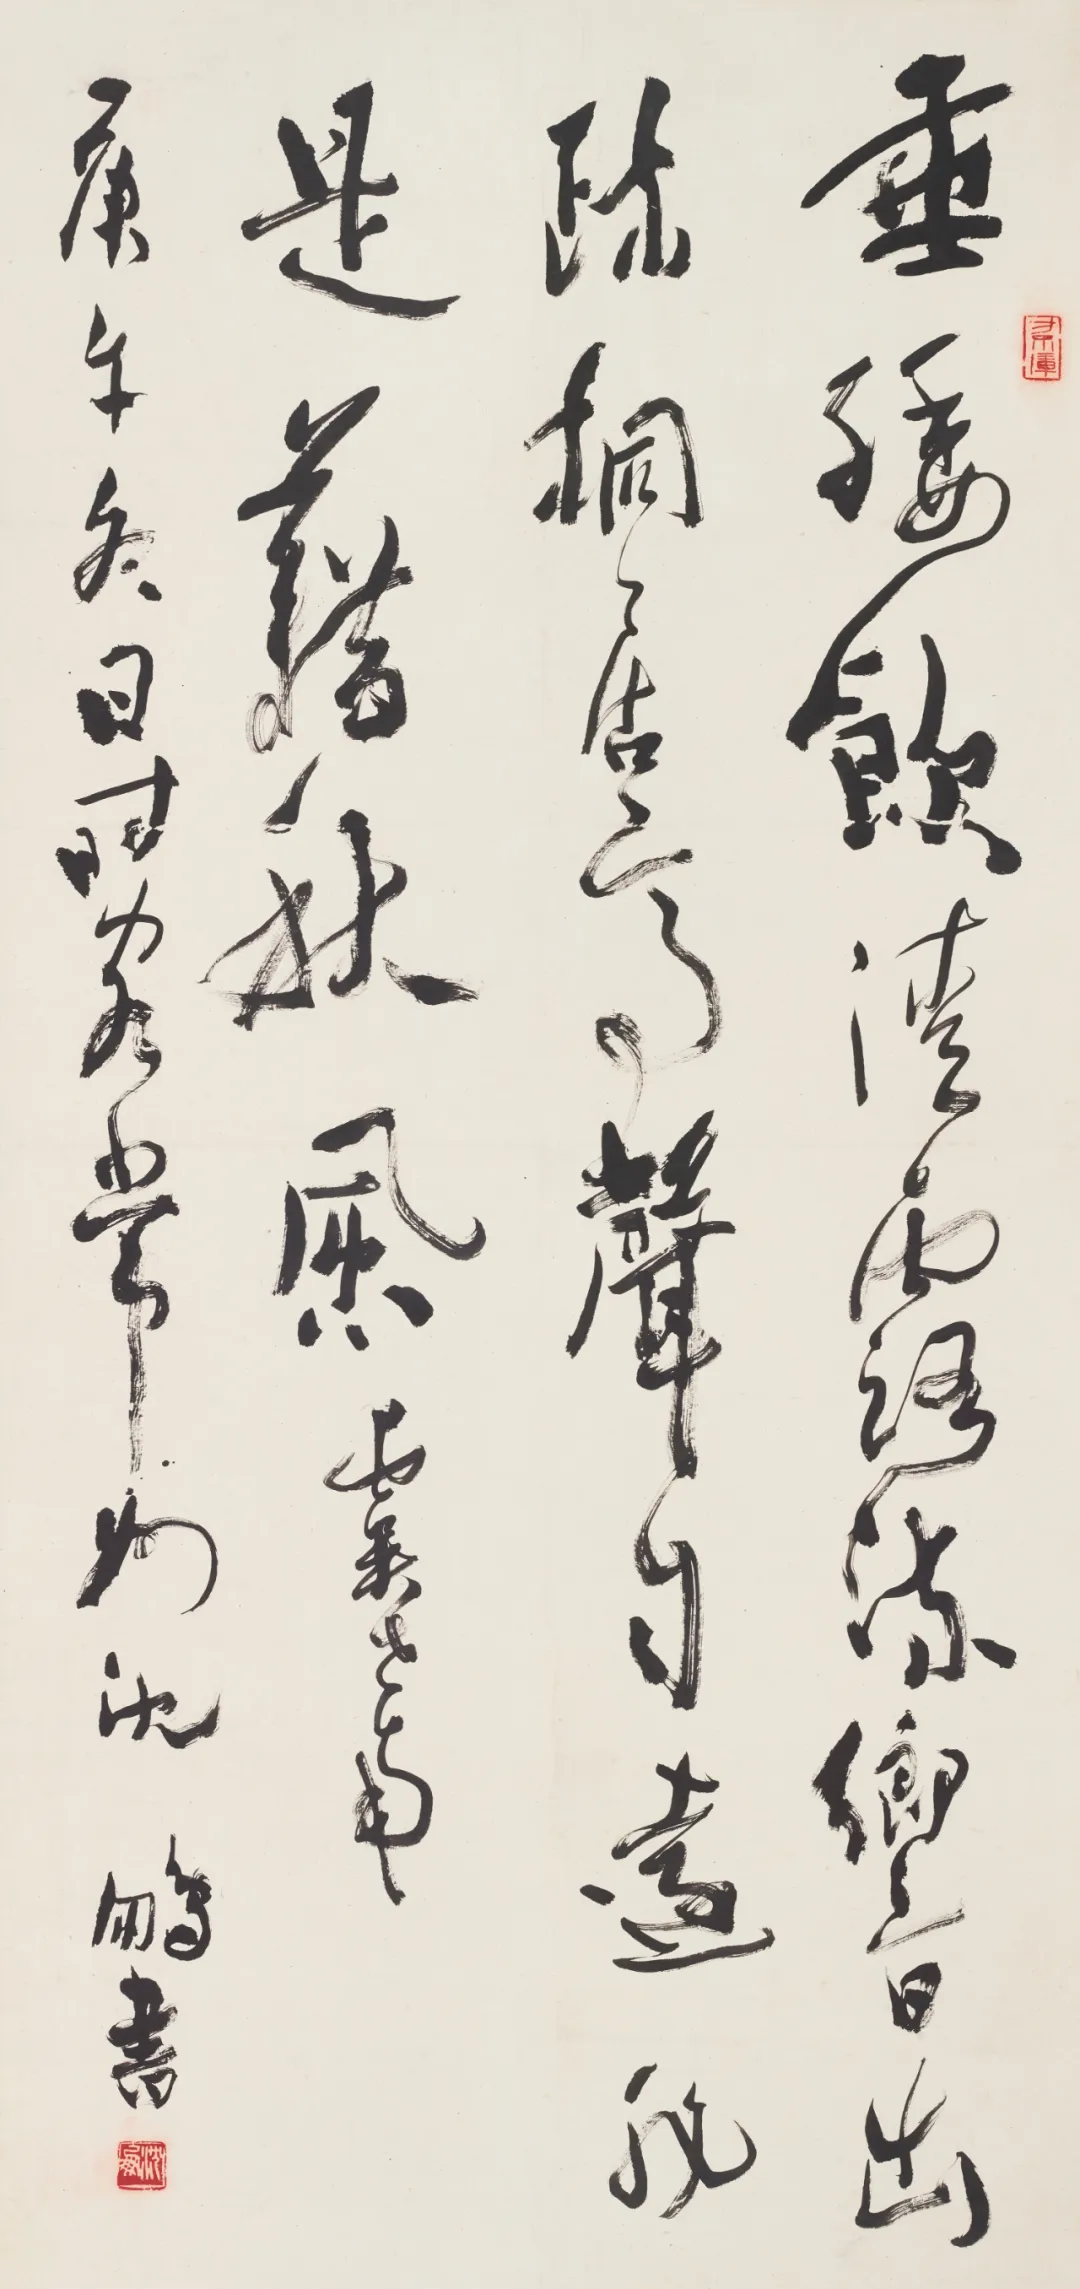 垂緌飲清露流響出
疎桐居高聲自遠非
是藉秋風 虞世南
庚午冬日時客常州沈鵬書
沈鵬